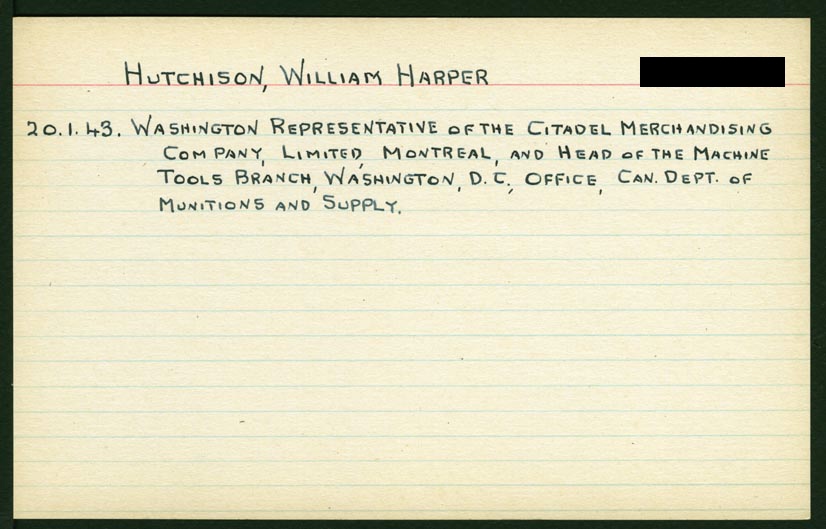 HUTCHISON, WILLIAM HARPER
20.1.43. WASHINGTON REPRESENTATIVE OF THE CITADEL MERCHANDISING
COMPANY, LIMITED, MONTREAL, AND HEAD OF THE MACHINE
TOOLS BRANCH, WASHINGTON, D.C., OFFICE, CAN. DEPT. OF
MUNITIONS AND SUPPLY.